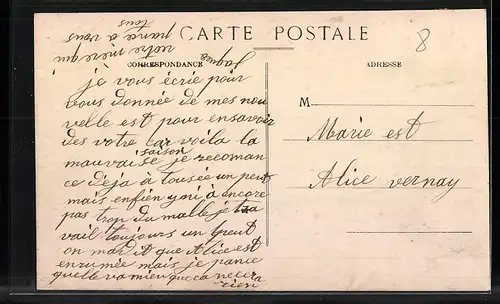 CARTE POSTALE
8
CORRESPONDANCE
ADRESSE
je vous écrie pour
vous donnée de mes nou
velle est pour ensavoir
des votre car voila la
mauvaise saison je recoman
ce déja à tousée un peut
mais enfien yni à encore
pas trop du malle je tra
vail toujours un peut
on mar dit que Alice est
enrumée mais je pance
quelle va mieu que ca nécera
rien
votre mère qui
pance a vous
tous
M
Marie est
Alice vernay